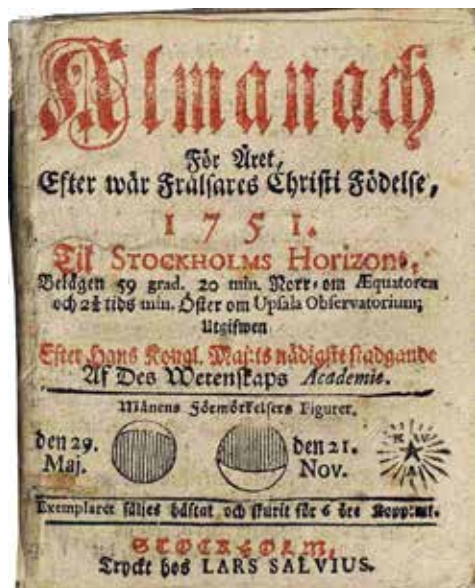 Almanach
För Året,
Efter wår Frälsares Christi Födelse,
1751.
Til STOCKHOLMS Horizont,
Belägen 59 grad. 20 min. Norr om Æquatoren
och 2½ tids min. Öster om Upsala Observatorium;
Utgifwen
Efter Hans Kongl. Maj:ts nådigste stadgande
Af Des Wetenskaps Academie.
Månens Förmörkelsers Figurer.
den 29. Maj.
den 21. Nov.
Exemplaret säljes häftat och skurit för 6 öre Kopp:mt.
STOCKHOLM,
Tryckt hos LARS SALVIUS.